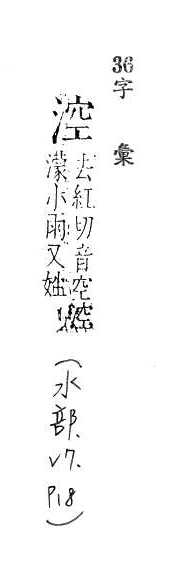 36字 彙
涳
去紅切音空涳
濛小雨又姓
(水部. V7. P18)